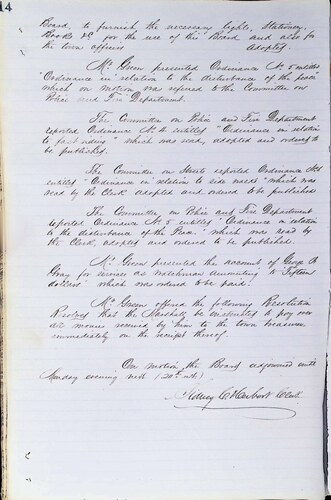 14
Board, to furnish the necessary lights, Stationery
Books &c for the use of this Board and also for
the town officers Adopted.
Mr Green presented Ordinance No 5 entitled
"Ordinance in relation to the disturbance of the peace"
which on motion was referred to the Committee on
Police and Fire Department.
The Committee on Police and Fire Department
reported Ordinance No 4 entitled "Ordinance in relation
to fast riding" which was read, adopted and ordered to
be published.
The Committee on Streets reported Ordinance
entitled "Ordinance in relation to side walks" which was
read by the Clerk adopted and ordered to be published
The Committee on Police and Fire Department
reported Ordinance No 5 entitled "Ordinance in relation
to the disturbance of the Peace" which was read by
the Clerk, adopted and ordered to be published.
Mr Green presented the account of George B
Gray for services as watchman amounting to fifteen
dollars which was ordered to be paid.
Mr Green offered the following Resolution
Resolved that the Marshall be instructed to pay over
all monies received by him to the town treasurer
immediately on the receipt thereof.
On motion the Board adjourned until
Monday evening next (20th inst)
Sidney C. Herbert Clerk